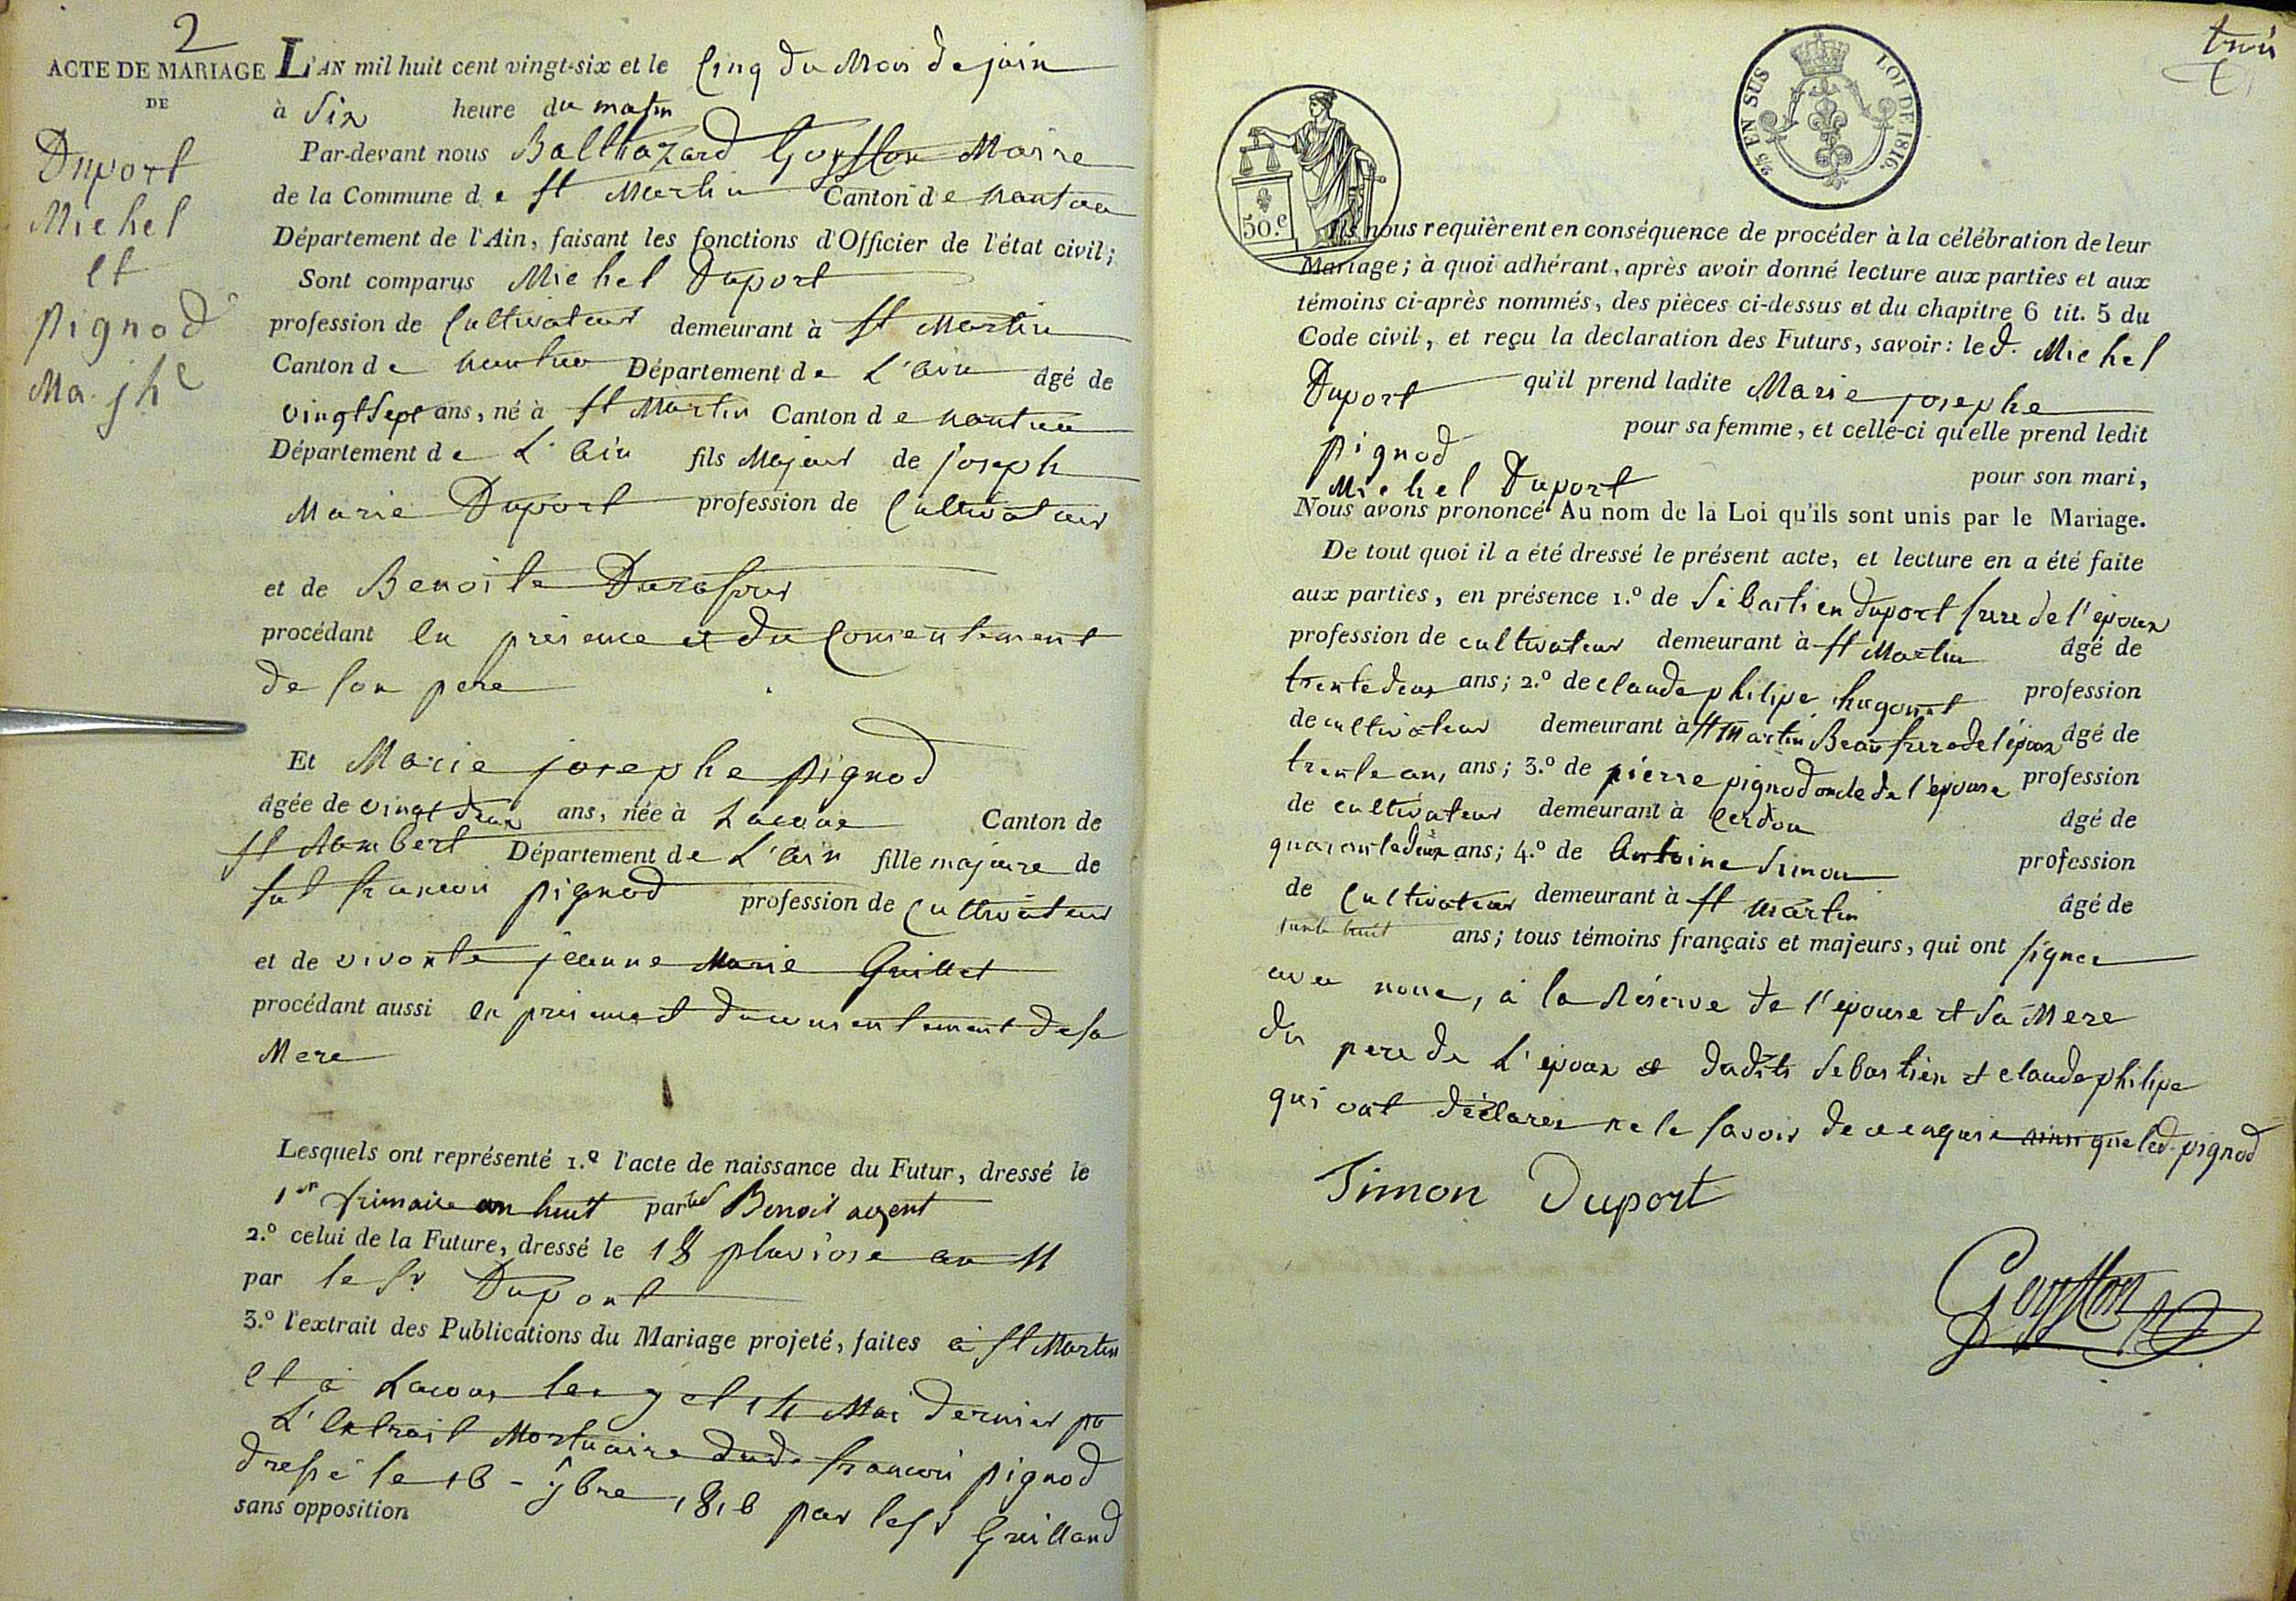 2
ACTE DE MARIAGE
DE
Duport
Michel
et
pignod
Ma. jhe
L'AN mil huit cent vingt-six et le Cinq du Mois de juin
à Six heure du matin
Par-devant nous Balthazard Goyffon Maire
de la Commune de St Martin Canton de nantua
Département de l'Ain, faisant les fonctions d'Officier de l'état civil;
Sont comparus Michel Duport
profession de Cultivateur demeurant à St Martin
Canton de nantua Département de L'ain âgé de
vingt Sept ans, né à St Martin Canton de nantua
Département de L'ain fils Majeur de joseph
Marie Duport profession de Cultivateur
et de Benoite Durafour
procédant en présence et du Consentement
de son pere
Et Marie josephe pignod
âgée de vingt deux ans, née à Lacoux Canton de
St Rambert Département de L'ain fille majeure de
fut francois pignod profession de Cultivateur
et de vivante jeanne Marie Guillet
procédant aussi en présence et du consentement de sa
Mere
Lesquels ont représenté 1.º l'acte de naissance du Futur, dressé le
1er frimaire an huit par led Benoit agent
2.º celui de la Future, dressé le 18 pluviose an 11
par le Sr Dupont
3.º l'extrait des Publications du Mariage projeté, faites à St Martin
et à Lacoux les 7 et 14 Mai dernier
L'Extrait Mortuaire dud. francois pignod
dressé le 16 - 9bre 1816 par le Sr Guilland
sans opposition
trois
50.c
2/5 EN SUS LOI DE 1816.
Ils nous requièrent en conséquence de procéder à la célébration de leur
Mariage; à quoi adhérant, après avoir donné lecture aux parties et aux
témoins ci-après nommés, des pièces ci-dessus et du chapitre 6 tit. 5 du
Code civil, et reçu la déclaration des Futurs, savoir: le d. Michel
Duport qu'il prend ladite Marie josephe
pignod pour sa femme, et celle-ci qu'elle prend ledit
Michel Duport pour son mari,
Nous avons prononcé Au nom de la Loi qu'ils sont unis par le Mariage.
De tout quoi il a été dressé le présent acte, et lecture en a été faite
aux parties, en présence 1.º de Sébastien duport frere de l'époux
profession de cultivateur demeurant à St Martin âgé de
trente deux ans; 2.º de claude philipe hugonet profession
de cultivateur demeurant à St Martin Beau frere de l'époux âgé de
trente an, ans; 3.º de pierre pignod oncle de l'épouse profession
de cultivateur demeurant à Cerdon âgé de
quarante deux ans; 4.º de Antoine Simon profession
de Cultivateur demeurant à St Martin âgé de
huit ans; tous témoins français et majeurs, qui ont signer
avec nous, à la Réserve de l'épouse et sa Mere
du pere de L'époux et dudits Sebastien et claude philipe
qui ont déclarer ne le savoir de ce enquis ainsi que led. pignod
Simon Duport
Goyffon